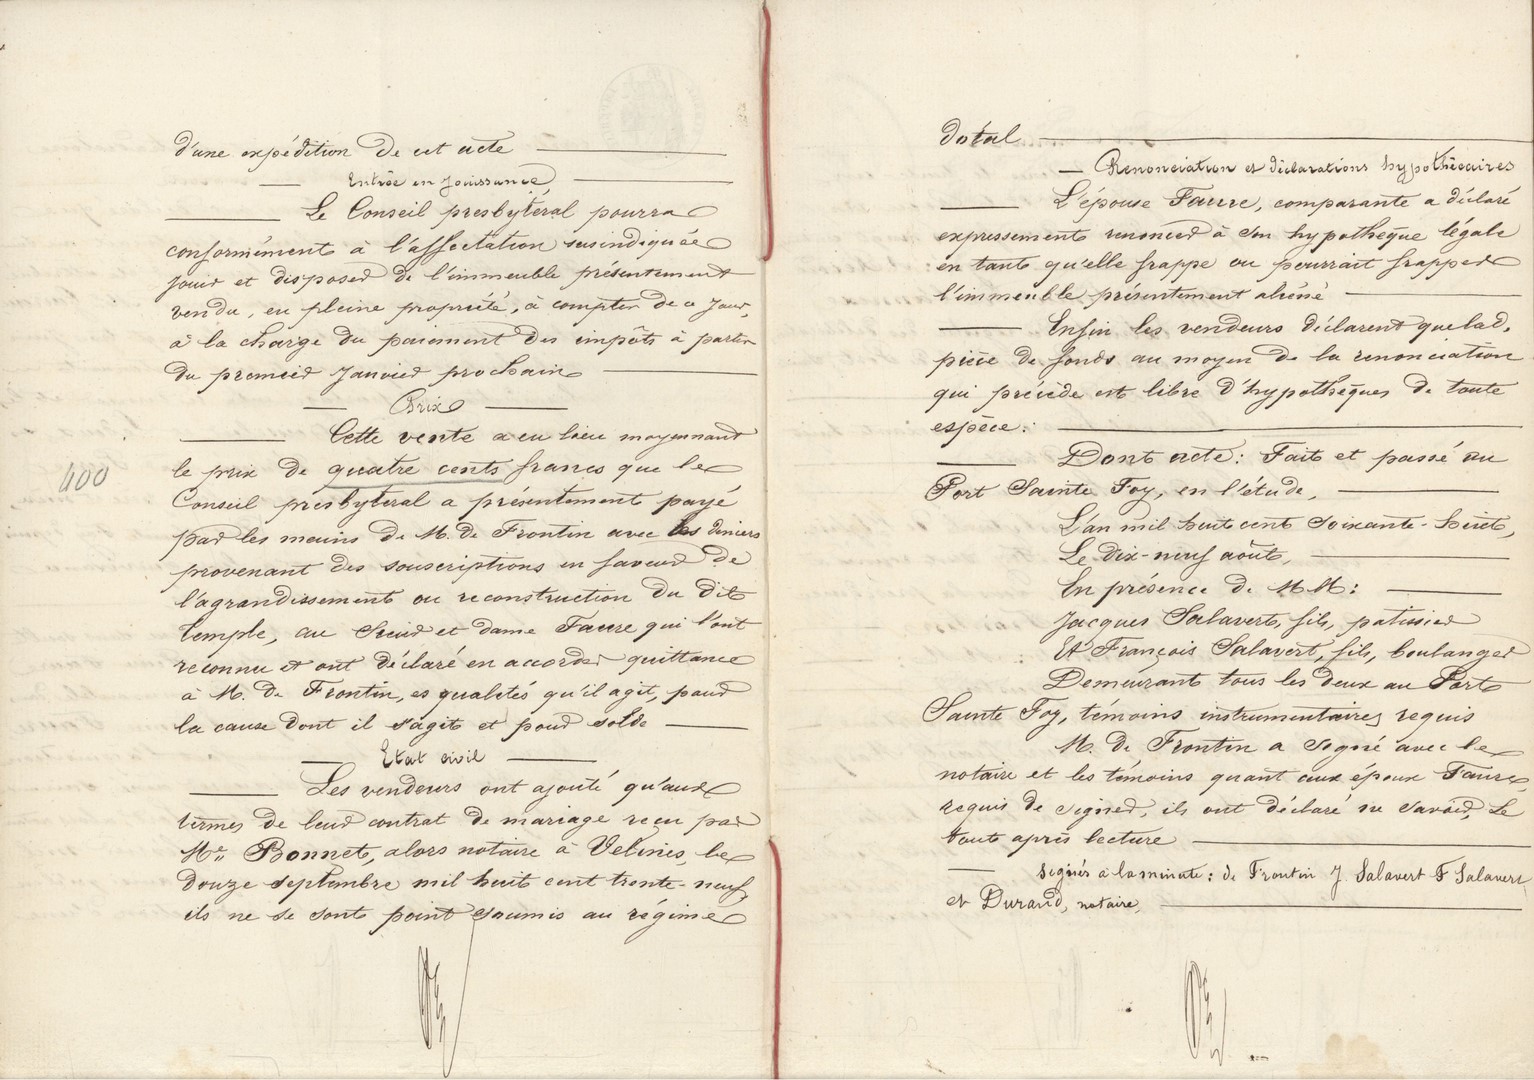 d'une expédition de cet acte
Entrée en Jouissance,
Le Conseil presbytéral pourra
conformément à l'affectation susindiquée
jouir et disposer de l'immeuble présentement
vendu, en pleine propriété, à compter de ce jour,
à la charge du paiement des impôts à partir
du premier Janvier prochain
Prix
Cette vente a eu lieu moyennant
400
le prix de quatre cents francs que le
Conseil presbytéral a présentement payé
par les mains de M. de Frontin avec les deniers
provenant des souscriptions en faveur de
l'agrandissement ou reconstruction du dit
temple, au Sieur et dame Faure qui l'ont
reconnu et ont déclaré en accorder quittance
à M. de Frontin, es qualités qu'il agit, pour
la cause dont il s'agit et pour solde
Etat civil
Les vendeurs ont ajouté qu'aux
termes de leur contrat de mariage reçu par
Me Bonnet, alors notaire à Velines, le
douze septembre mil huit cent trente-neuf,
ils ne se sont point soumis au régime
dotal
Renonciation et déclarations hypothécaires
L'épouse Faure, comparante a déclaré
expressement renoncer à son hypothèque légale
en tant qu'elle frappe ou pourrait frapper
l'immeuble présentement aliéné
Enfin les vendeurs déclarent que lad.
pièce de fonds au moyen de la renonciation
qui précède est libre d'hypothèques de toute
espèce.
Dont acte: Fait et passé au
Port Sainte Foy, en l'étude,
L'an mil huit cent soixante-huit,
Le dix-neuf août,
En présence de MM:
Jacques Salavert, fils, patissier
Et François Salavert, fils, boulanger
Demeurant tous les deux au Port
Sainte Foy, témoins instrumentaires requis
M. de Frontin a signé avec le
notaire et les témoins quant aux époux Faure,
requis de signer, ils ont déclaré ne savoir, Le
tout après lecture
signés à la minute: de Frontin J. Salavert F Salavert
et Durand, notaire,